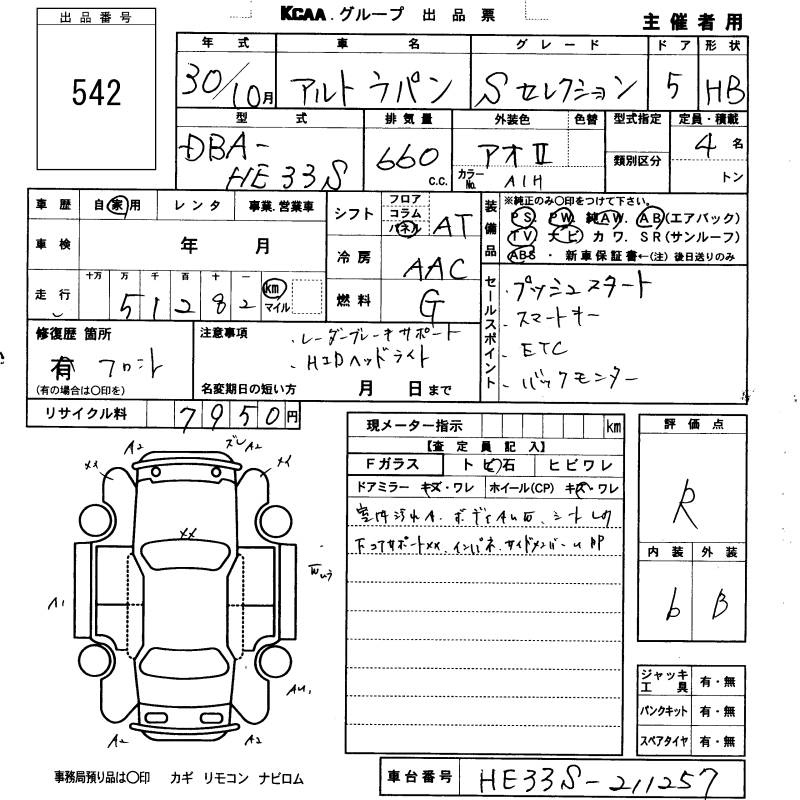 KCAA.グループ 出品票
主催者用
出品番号
542
年式 車名 グレード ドア 形状
30/10月 アルトラパン Sセレクション 5 HB
型式 排気量 外装色 色替 型式指定 定員・積載
DBA- 660 c.c. アオⅡ 類別区分 4名
HE33S カラーNo. A1H トン
車歴 自家用 レンタ 事業.営業車
車検 年 月
走行 十万 万 千 百 十 一
51282 km マイル
シフト フロア コラム パネル AT
冷房 AAC
燃料 G
装備品 ※純正のみ○印をつけて下さい。
PS. PW. 純AW. AB(エアバック)
TV ナビ カワ. SR(サンルーフ)
ABS ・ 新車保証書←(注)後日送りのみ
セールスポイント
・プッシュスタート
・スマートキー
・ETC
・バックモニター
修復歴 箇所
有 フロント
(有の場合は○印を)
注意事項
・レーダーブレーキサポート
・HIDヘッドライト
名変期日の短い方 月 日まで
リサイクル料 7950円
現メーター指示 km
【査定員記入】
Fガラス トビ石 ヒビワレ
ドアミラー キズ・ワレ ホイール(CP) キズ・ワレ
下コアサポートXX、インパネ、サイドメンバー
評価点
R
内装 外装
b B
ジャッキ工具 有・無
パンクキット 有・無
スペアタイヤ 有・無
A2 ズレ A2
XX
A1
A2 A2
事務局預り品は○印 カギ リモコン ナビロム
車台番号 HE33S-211257